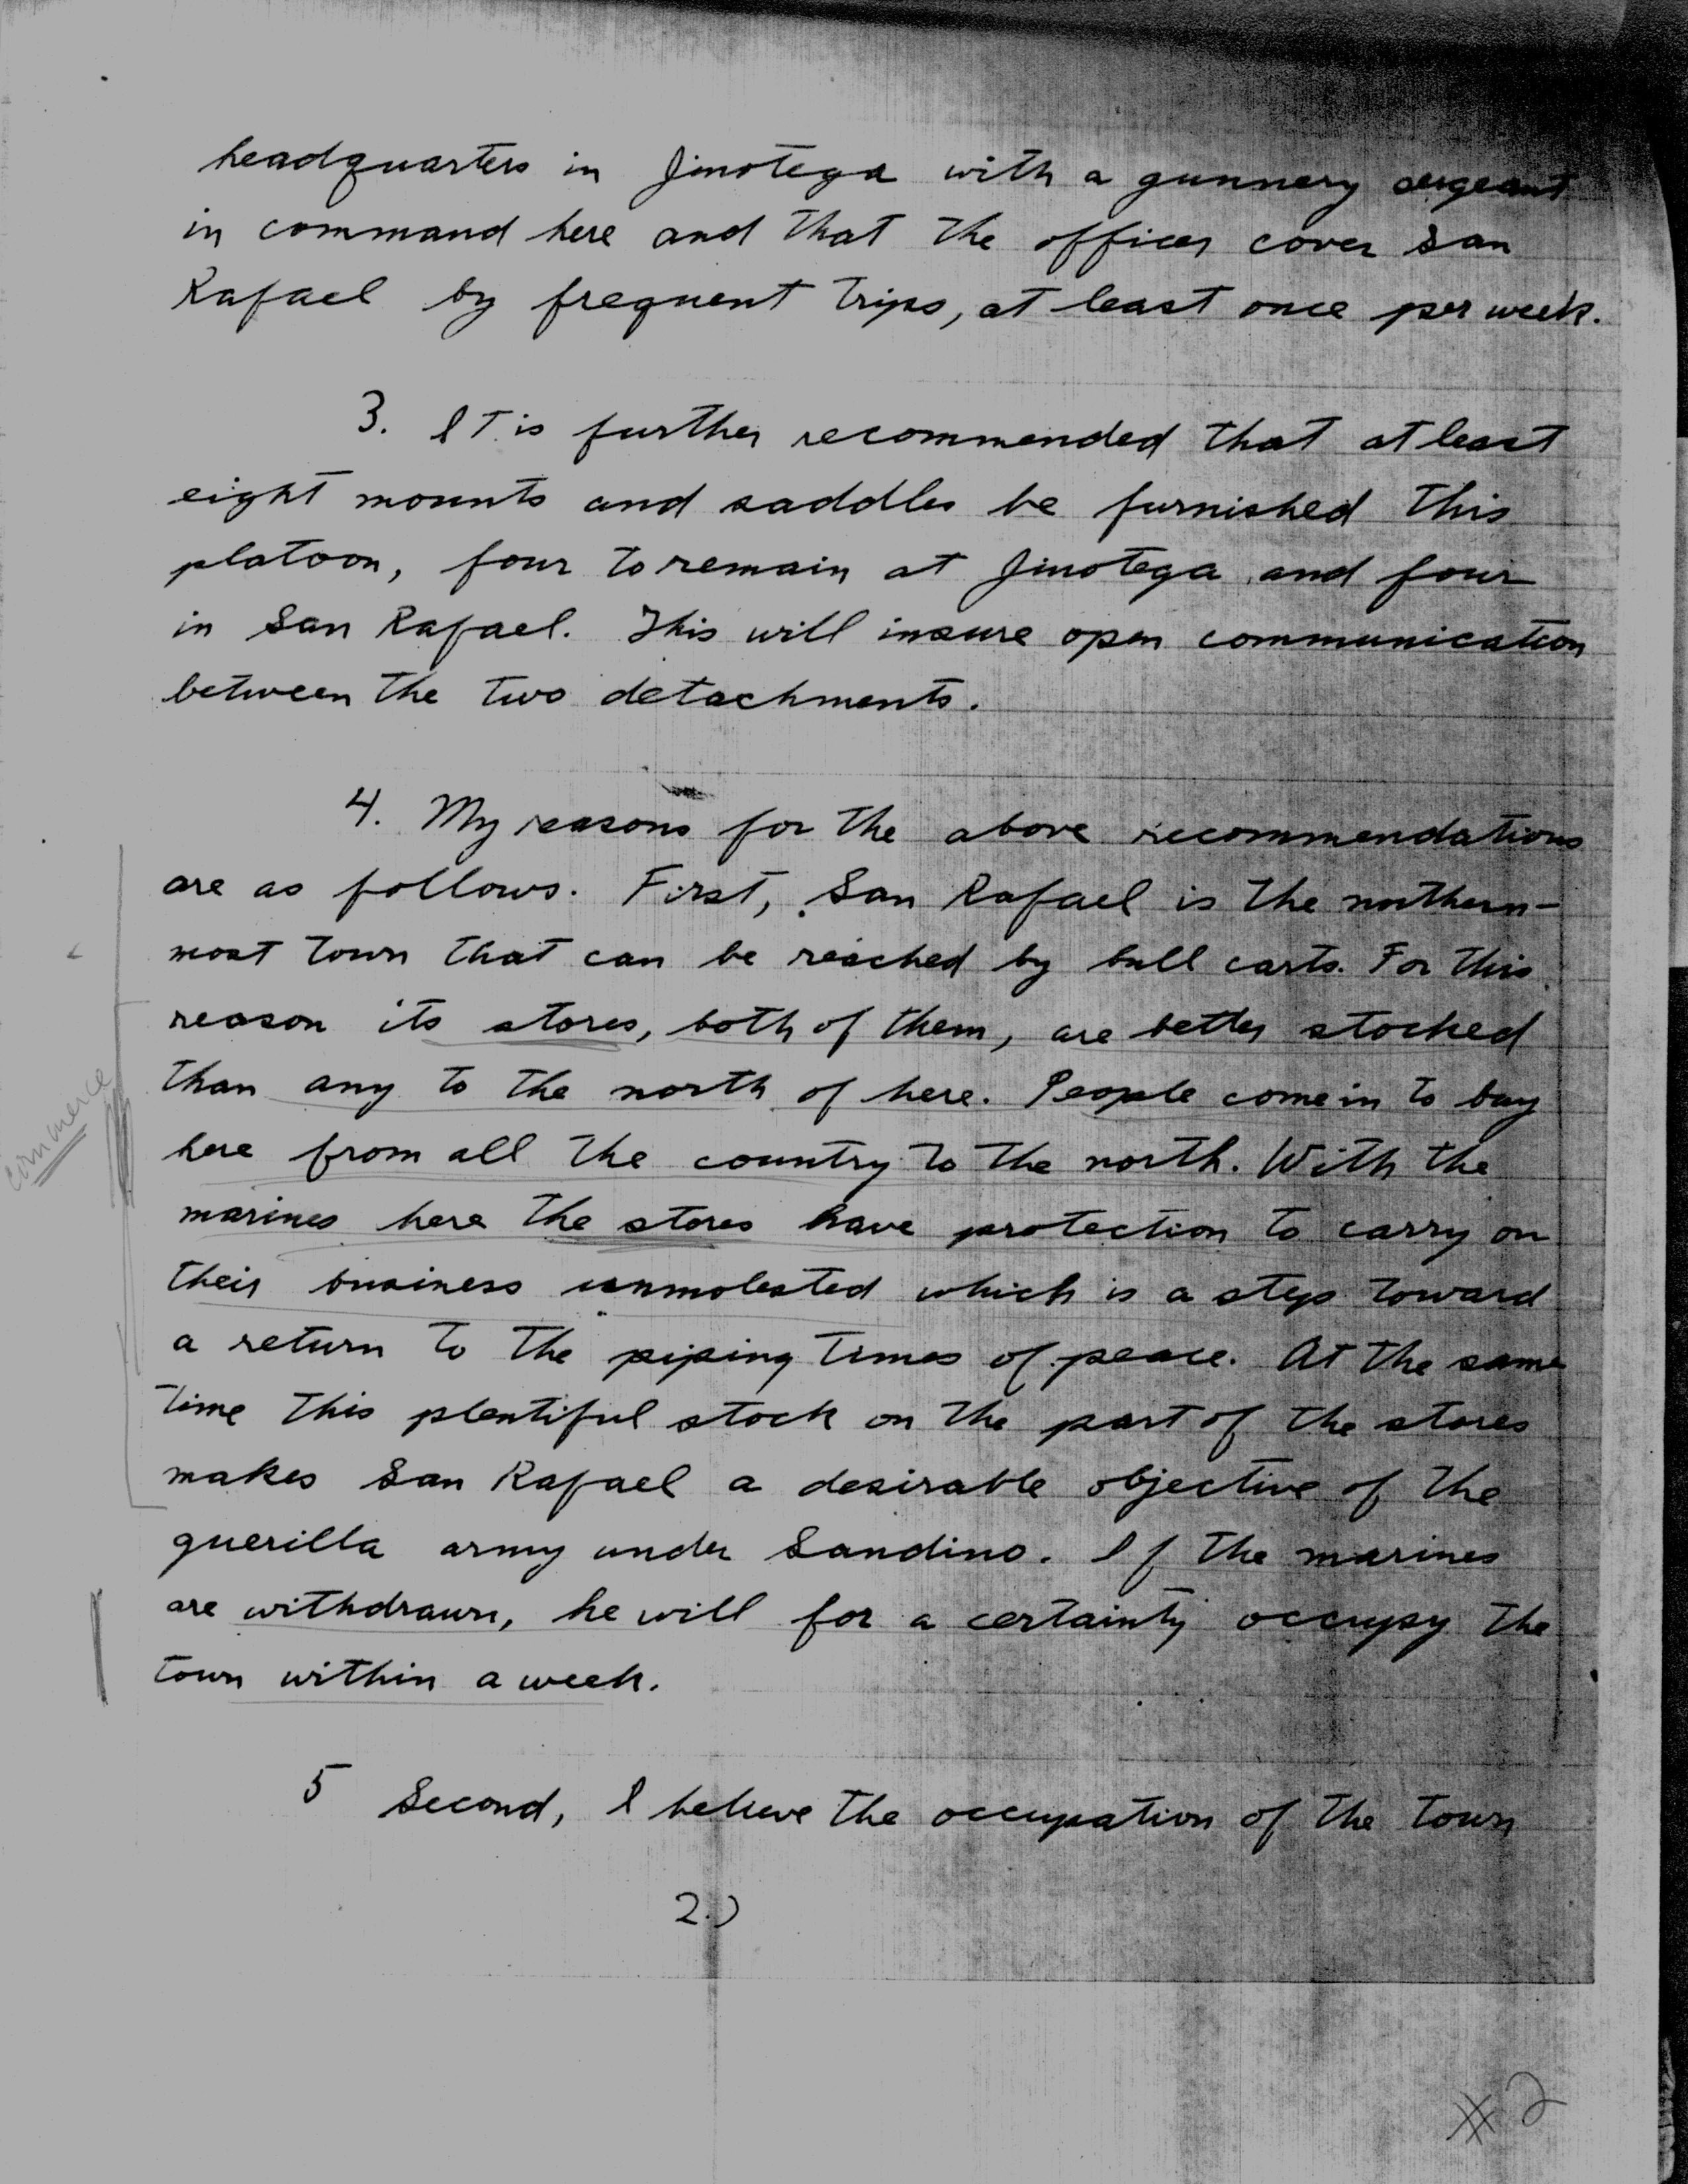 headquarters in Jinotega with a gunnery sergeant
in command here and that the officer cover San
Rafael by frequent trips, at least once per week.
3. It is further recommended that at least
eight mounts and saddles be furnished this
platoon, four to remain at Jinotega and four
in San Rafael. This will insure open communication
between the two detachments.
4. My reasons for the above recommendations
are as follows. First, San Rafael is the northern-
most town that can be reached by bull carts. For this
reason its stores, both of them, are better stocked
than any to the north of here. People come in to buy
here from all the country to the north. With the
marines here the stores have protection to carry on
their business unmolested which is a step toward
a return to the piping times of peace. At the same
time this plentiful stock on the part of the stores
makes San Rafael a desirable objective of the
guerilla army under Sandino. If the marines
are withdrawn, he will for a certainty occupy the
town within a week.
5 Second, I believe the occupation of the town
2.)
commerce
#2